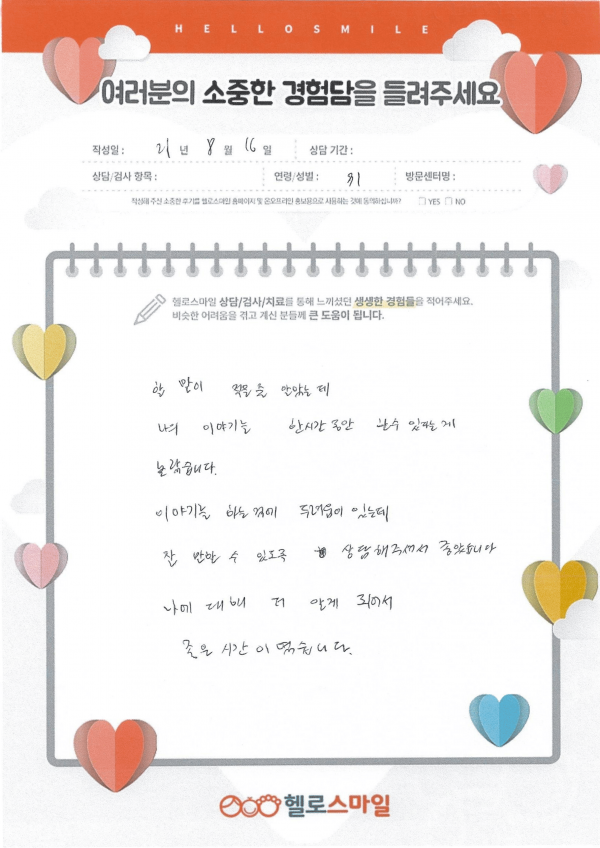 HELLOSMILE
여러분의 소중한 경험담을 들려주세요
작성일 : 21 년 8 월 16 일 상담 기간 :
상담/검사 항목 : 연령/성별 : 방문센터명 :
작성해 주신 소중한 후기를 헬로스마일 홈페이지 및 온오프라인 홍보용으로 사용하는 것에 동의하십니까? □ YES □ NO
헬로스마일 상담/검사/치료를 통해 느끼셨던 생생한 경험들을 적어주세요.
비슷한 어려움을 겪고 계신 분들께 큰 도움이 됩니다.
할 말이 없을 줄 안았는데
나의 이야기를 한시간 동안 할수 있다는게
놀랐습니다.
이야기를 하는 거에 두려움이 있는데
잘 말할 수 있도록 상담해주셔서 좋았습니다
나에 대해 더 알게 되어서
좋은 시간이였습니다.
헬로스마일